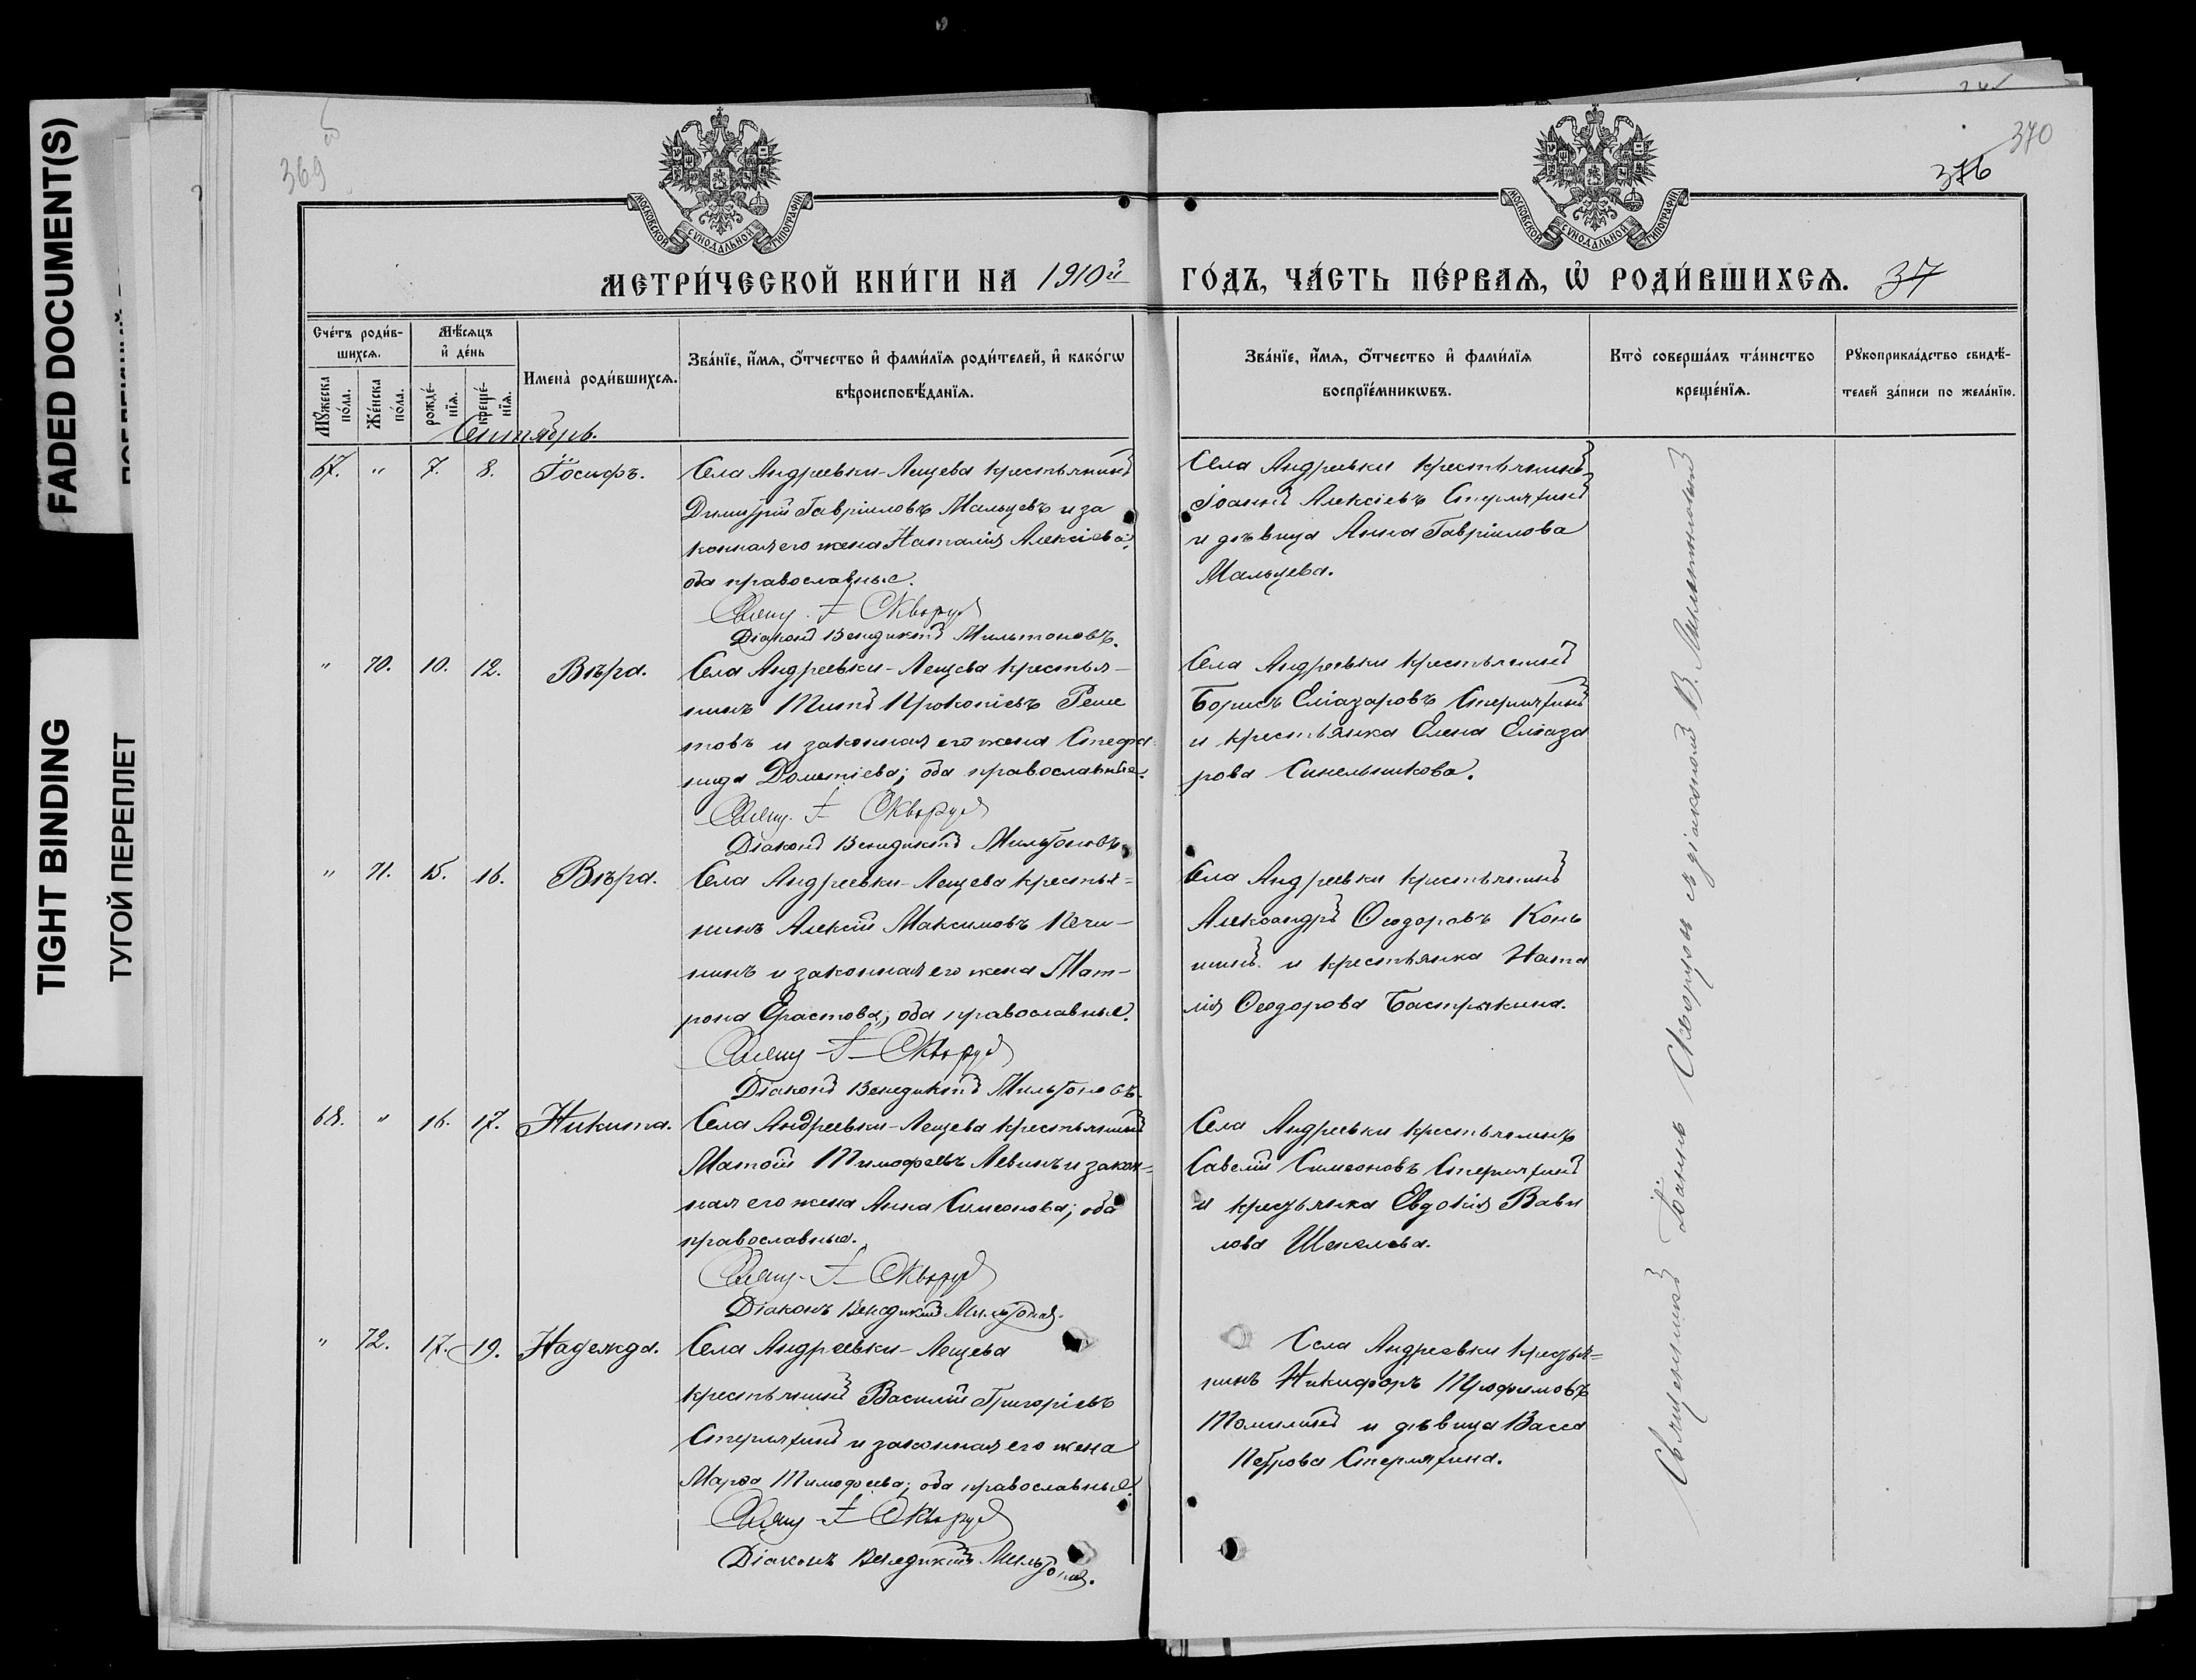 FADED DOCUMENT(S)
TIGHT BINDING
ТУГОЙ ПЕРЕПЛЕТ
369 об
370
376
МОСКОВСКОЙ СѴНОДАЛЬНОЙ ТИПОГРАФІИ
МОСКОВСКОЙ СѴНОДАЛЬНОЙ ТИПОГРАФІИ
МЕТРИ́ЧЕСКОЙ КНИ́ГИ НА 1910й
ГО́ДЪ, ЧА́СТЬ ПЕ́РВАѦ, Ѡ҆ РОДИ́ВШИХСѦ. 37
Сче́тъ роди́в-
шихсѧ.
Мꙋ́жеска по́ла.
Же́нска по́ла.
Мѣ́сѧцъ
и҆ де́нь
рожде́-
нїѧ.
креще́-
нїѧ.
Имена̀ роди́вшихсѧ.
Зва́нїе, и҆́мѧ, ѻ҆́тчество и҆ фами́лїѧ роди́телей, и҆ како́гѡ
вѣроисповѣ́данїѧ.
Зва́нїе, и҆́мѧ, ѻ҆́тчество и҆ фами́лїѧ
воспрїе́мникѡвъ.
Кто̀ соверша́лъ та́инство
креще́нїѧ.
Рꙋкоприкла́дство свидѣ́-
телей за́писи по жела́нїю.
Сентябрь.
67. " 7. 8. Іосифъ.
Села Андреевки-Лещева крестьянинъ
Димитрій Гавріиловъ Мальцевъ и за
конная его жена Наталія Алексіева,
оба православные.
Свящ. І. Скворцовъ
Діаконъ Венедиктъ Мильтоновъ.
Села Андреевки крестьянинъ
Іоаннъ Алексіевъ Стерляхинъ
и дѣвица Анна Гавріилова
Мальцева.
" 70. 10. 12. Вѣра.
Села Андреевки-Лещева крестья-
нинъ Титъ Прокопіевъ Реше
товъ и законная его жена Стефа
нида Дометіева; оба православные.
Свящ. І. Скворцовъ
Діаконъ Венедиктъ Мильтоновъ.
Села Андреевки крестьянинъ
Борисъ Еліазаровъ Стерляхинъ
и крестьянка Елена Еліаза
рова Синельникова.
" 71. 15. 16. Вѣра.
Села Андреевки-Лещева крестья-
нинъ Алексій Максимовъ Печи-
нинъ и законная его жена Мат-
рона Ерастова; оба православные.
Свящ. І. Скворцовъ
Діаконъ Венедиктъ Мильтоновъ.
Села Андреевки крестьянинъ
Александръ Ѳеодоровъ Конь
шинъ и крестьянка Ната
лія Ѳеодорова Бастрякина.
68. " 16. 17. Никита.
Села Андреевки-Лещева крестьянинъ
Матѳій Тимофеевъ Левинъ и закон-
ная его жена Анна Симеонова; оба
православные.
Свящ. І. Скворцовъ
Діаконъ Венедиктъ Мильтоновъ.
Села Андреевки крестьянинъ
Савелій Симеоновъ Стерляхинъ
и крестьянка Евдокія Вави
лова Шекелева.
" 72. 17. 19. Надежда.
Села Андреевки-Лещева
крестьянинъ Василій Григоріевъ
Стерляхинъ и законная его жена
Марѳа Тимофеева; оба православные.
Свящ. І. Скворцовъ
Діаконъ Венедиктъ Мильтоновъ.
Села Андреевки крестья-
нинъ Никифоръ Трофимовъ
Томилинъ и дѣвица Васса
Петрова Стерляхина.
Священникъ Іоаннъ Скворцовъ съ діакономъ В. Мильтоновымъ